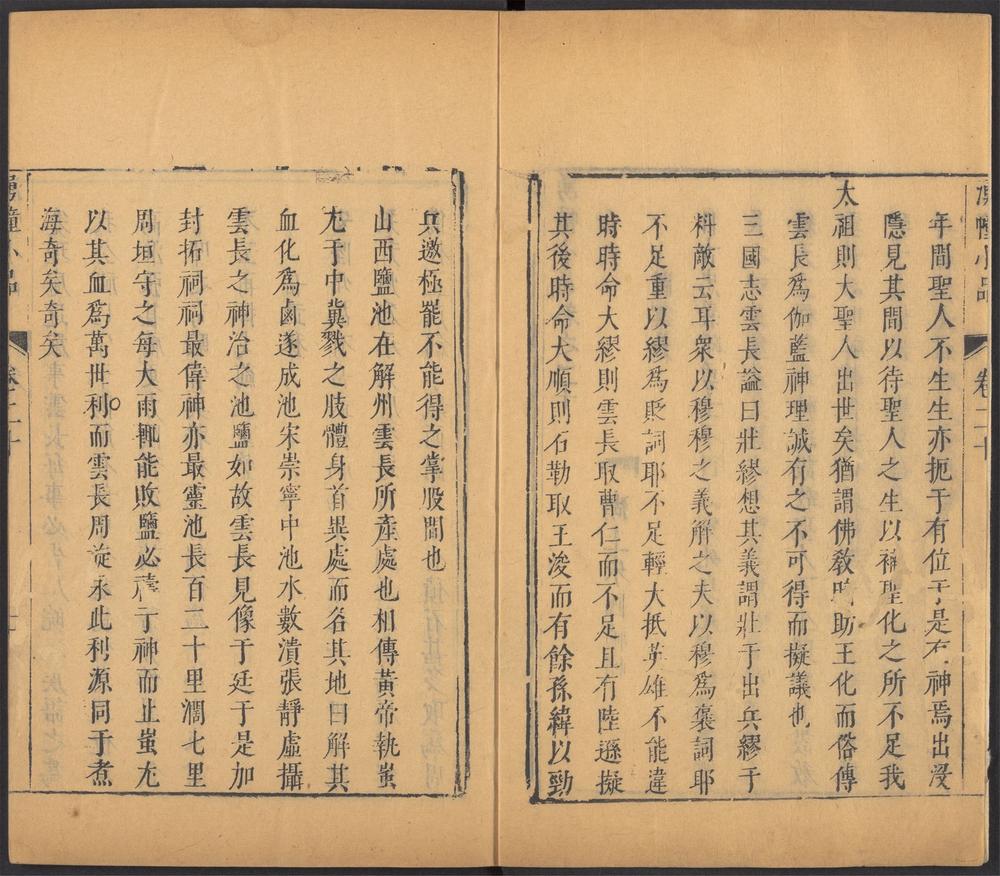 湧幢小品 卷二十
年間聖人不生生亦扼于有位于是有神焉出沒
隱見其間以待聖人之生以補聖化之所不足我
太祖則大聖人出世矣猶謂佛教助王化而俗傳
雲長爲伽藍神理誠有之不可得而擬議也
三國志雲長謚曰壯繆想其義謂壯于出兵繆于
料敵云耳衆以穆穆之義解之夫以穆爲褒詞耶
不足重以繆爲貶詞耶不足輕大抵英雄不能違
時時命大繆則雲長取曹仁而不足且有陸遜擬
其後時命大順則石勒取王浚而有餘孫緯以勁
兵邀極罷不能得之掌股間也
山西鹽池在解州雲長所產處也相傳黃帝執蚩
尤于中冀戮之肢體身首異處而名其地曰解其
血化爲鹵遂成池宋崇寧中池水數潰張靜虛攝
雲長之神治之池鹽如故雲長見像于廷于是加
封拓祠祠最偉神亦最靈池長百二十里濶七里
周垣守之每大雨輒能敗鹽必禱于神而止蚩尤
以其血爲萬世利而雲長周旋永此利源同于煮
海奇矣奇矣
湧幢小品 卷二十